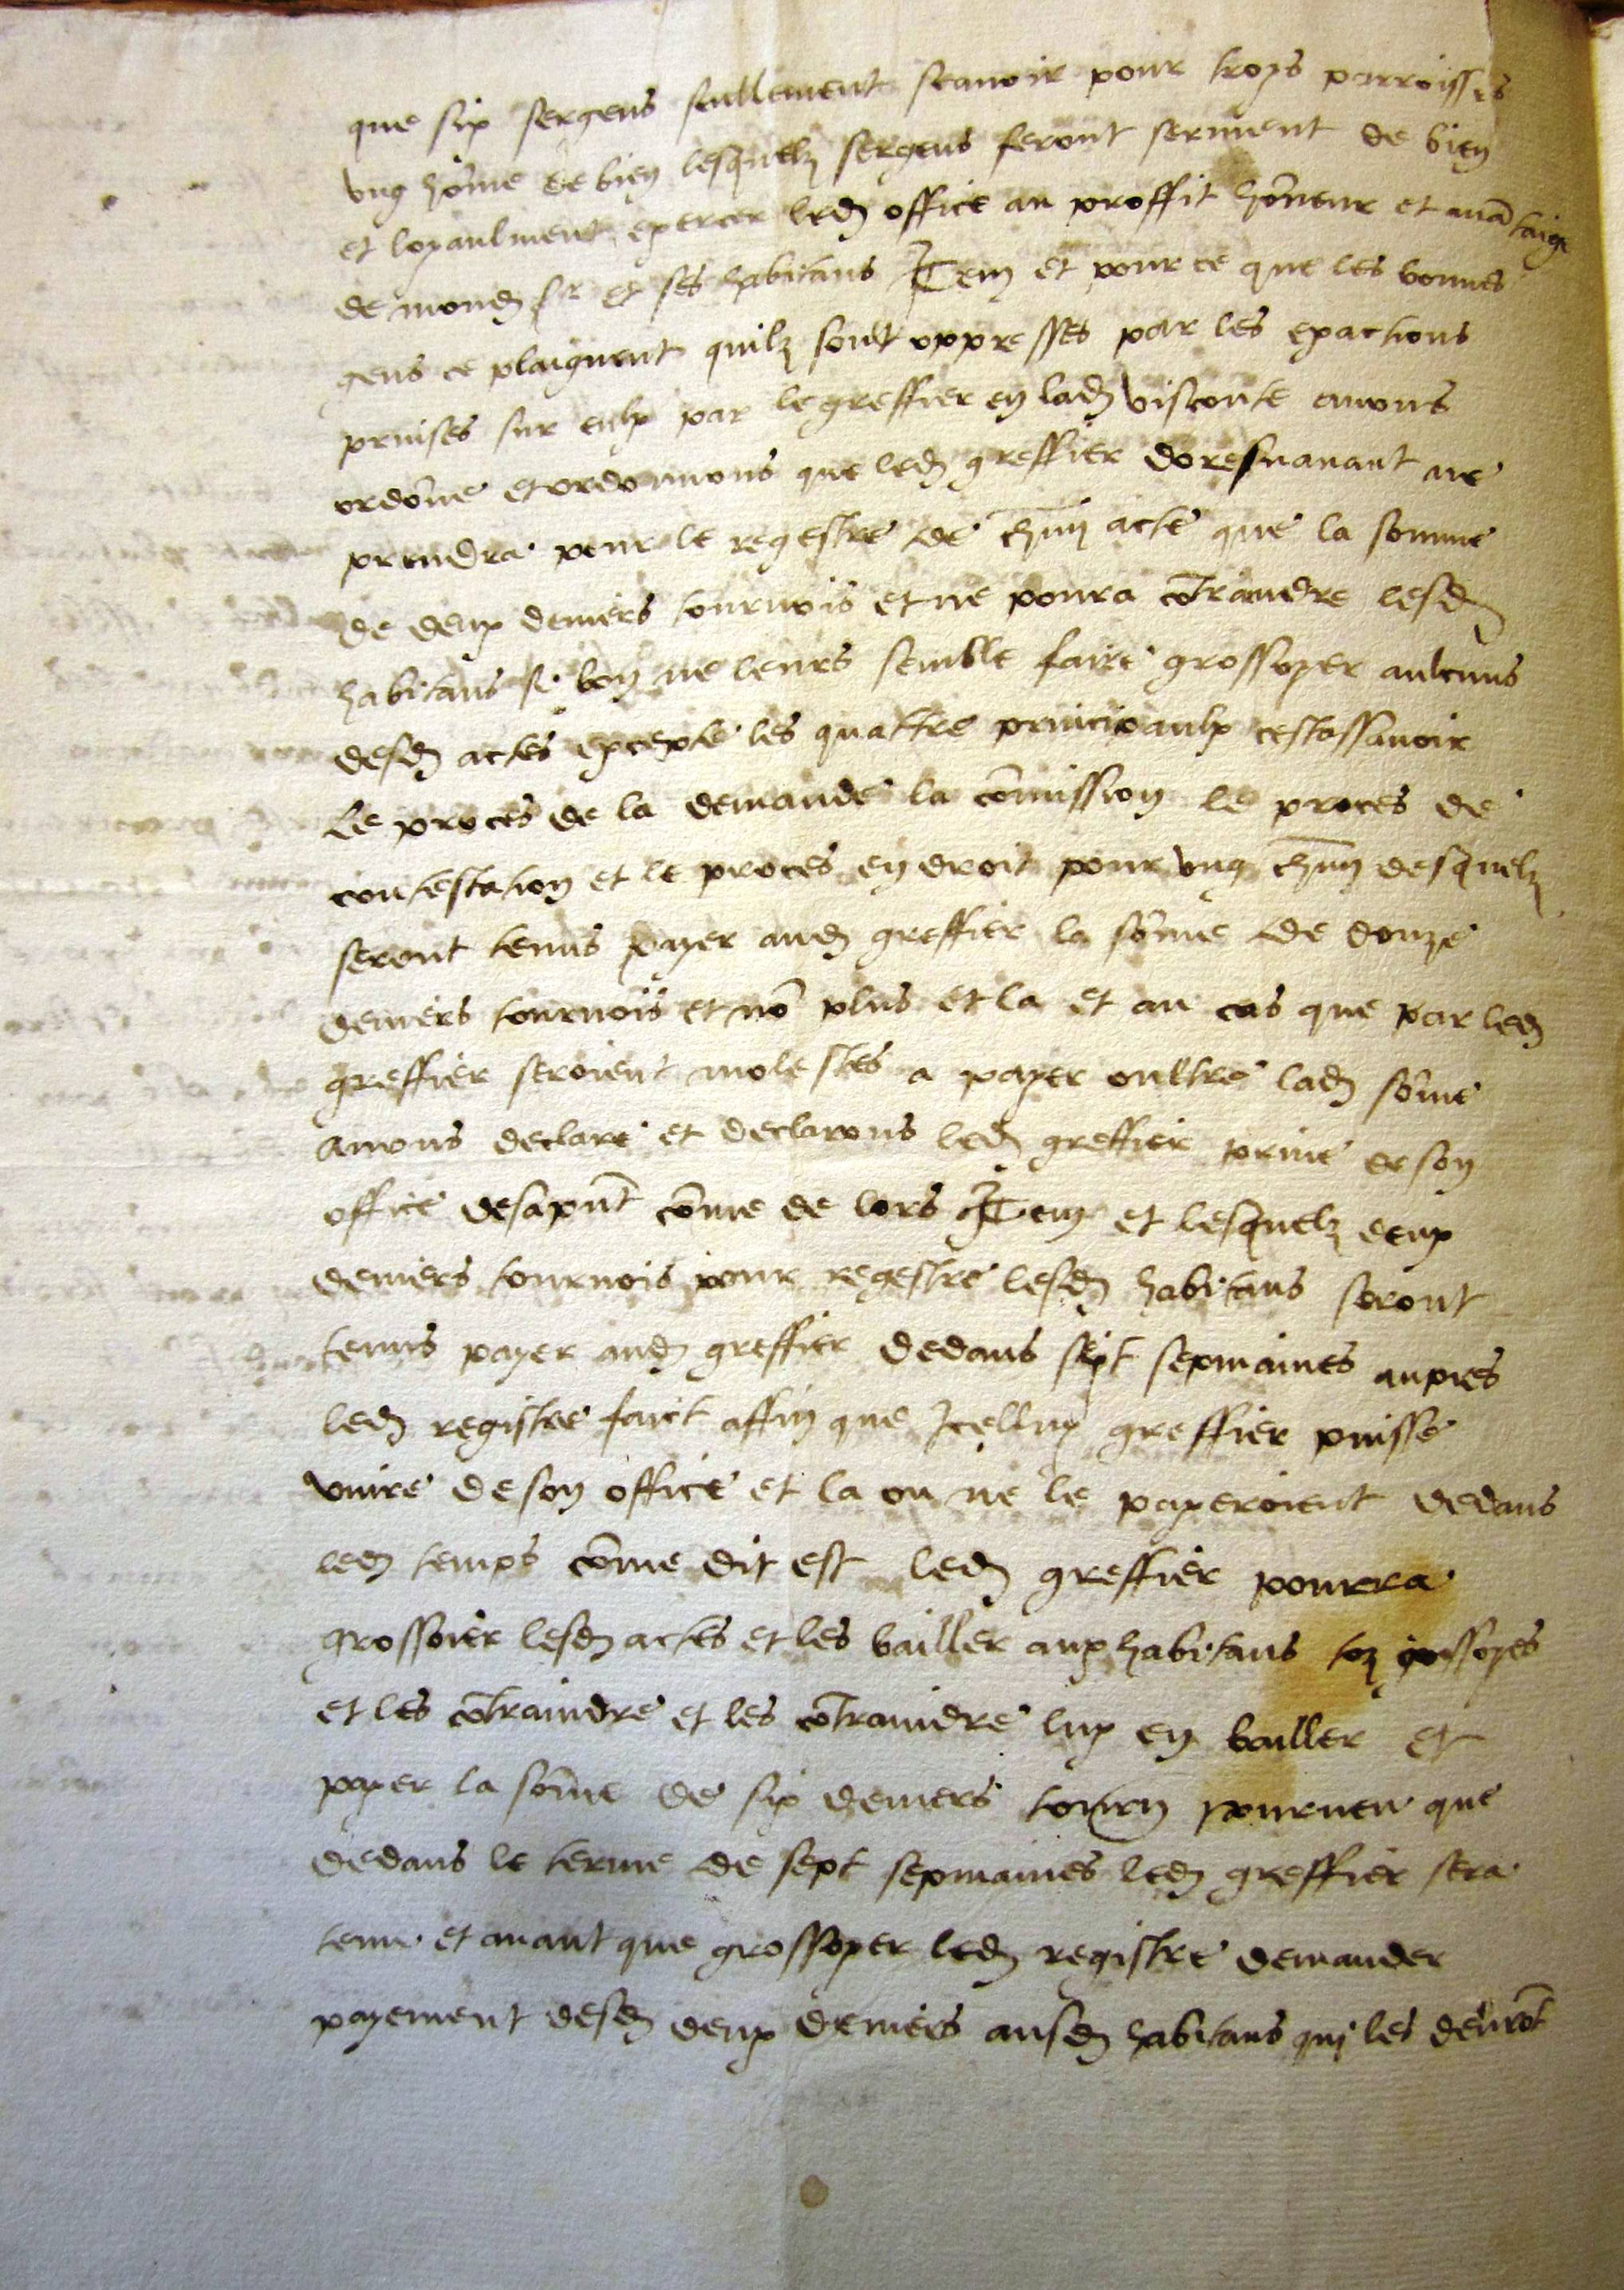 que six sergens seullement scauoir pour troys parroisses
ung hôme de bien lesquelz sergens feront serment de bien
et loyaulment exercer led office au proffit hôneur et auãtaige
de mond sr et ses habitans Item et pour ce que les bonnes
gens ce plaignent quilz sont oppresses par les exactions
prinses sur eulx par le greffier en lad visconte auons
ordône et ordonnons que led greffier doresnauant ne
prendra pour le regestre de chũn acte que la somme
de deux deniers tournois et ne poura côtraindre lesd
habitans si bon ne leurs semble faire grossoyer aulcuns
desd actes excepte les quattre principaulx cestassauoir
le proces de la demande la cômission le proces de
contestation et le proces en droit pour ung chũn desquelz
seront tenus payer aud greffier la sôme de douze
deniers tournois et nô plus et la et au cas que par led
greffier seroient molestes a payer oultre lad sôme
auons declare et declarons led greffier priue de son
office desapñt cõme de lors Item et lesquelz deux
deniers tournois pour regestre lesd habitans seront
tenus payer aud greffier dedans sept sepmaines aupres
led registre faict affin que Icelluy greffier puisse
viure de son office et la ou ne le payeroient dedans
led temps cõme dit est led greffier pourra
grossoier lesd actes et les bailler aux habitans toz grossoyes
et les côtraindre et les côtraindre luy en bailler et
payer la sôme de six deniers tourn pourueu que
dedans le terme de sept sepmaines led greffier sera
tenu et auant que grossoyer led registre demander
payement desd deux deniers ausd habitans qui les deurôt